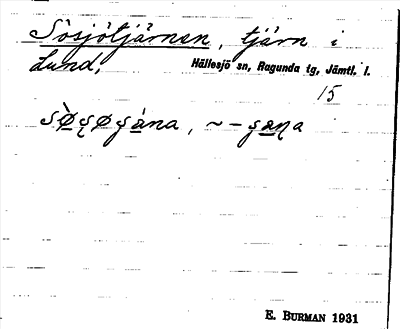 Sösjötjärnen, tjärn i
Lund, Hällesjö sn, Ragunda tg, Jämtl. l.
15
E. BURMAN 1931